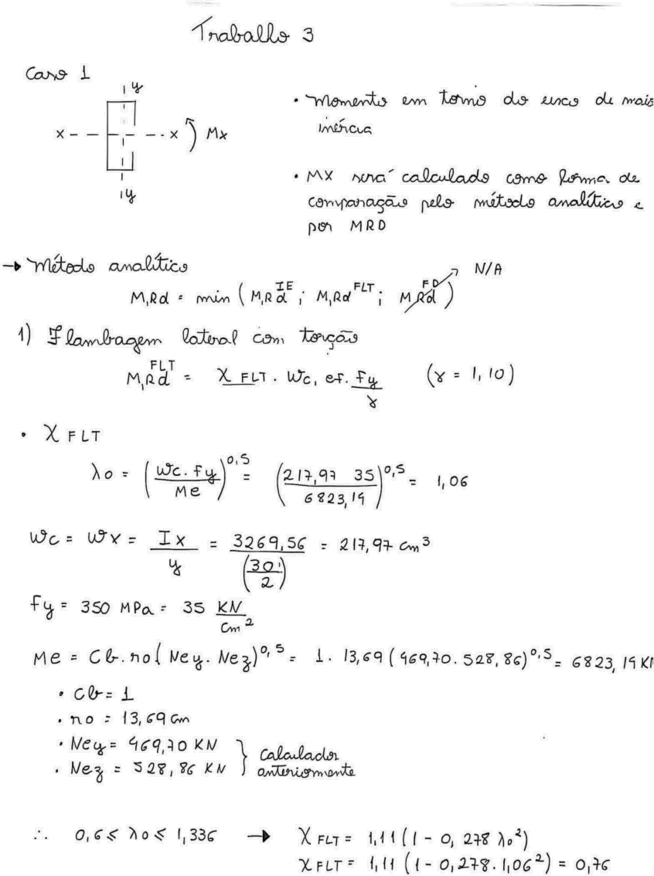 Trabalho 3
Caso 1
y
x x Mx
y
• Momento em torno do eixo de mais
inércia
• Mx será calculado como forma de
comparação pelo método analítico e
por MRD
→ Método analítico
M,Rd = min (M,Rd^IE ; M,Rd^FLT ; M,Rd^FD) N/A
1) Flambagem lateral com torção
M,Rd^FLT = χ FLT . Wc, ef. fy/γ (γ = 1,10)
• χ FLT
λo = (Wc . fy / Me)^0,5 = (217,97 35 / 6823,19)^0,5 = 1,06
Wc = Wx = Ix / y = 3269,56 / (30/2) = 217,97 cm³
fy = 350 MPa = 35 KN/cm²
Me = Cb.ro (Ney . Nez)^0,5 = 1 . 13,69 (469,70 . 528,86)^0,5 = 6823,19 KN
• Cb = 1
• ro = 13,69 cm
• Ney = 469,70 KN
• Nez = 528,86 KN } calculados anteriormente
∴ 0,6 ≤ λo ≤ 1,336 → χ FLT = 1,11 (1 - 0,278 λo²)
χ FLT = 1,11 (1 - 0,278 . 1,06²) = 0,76